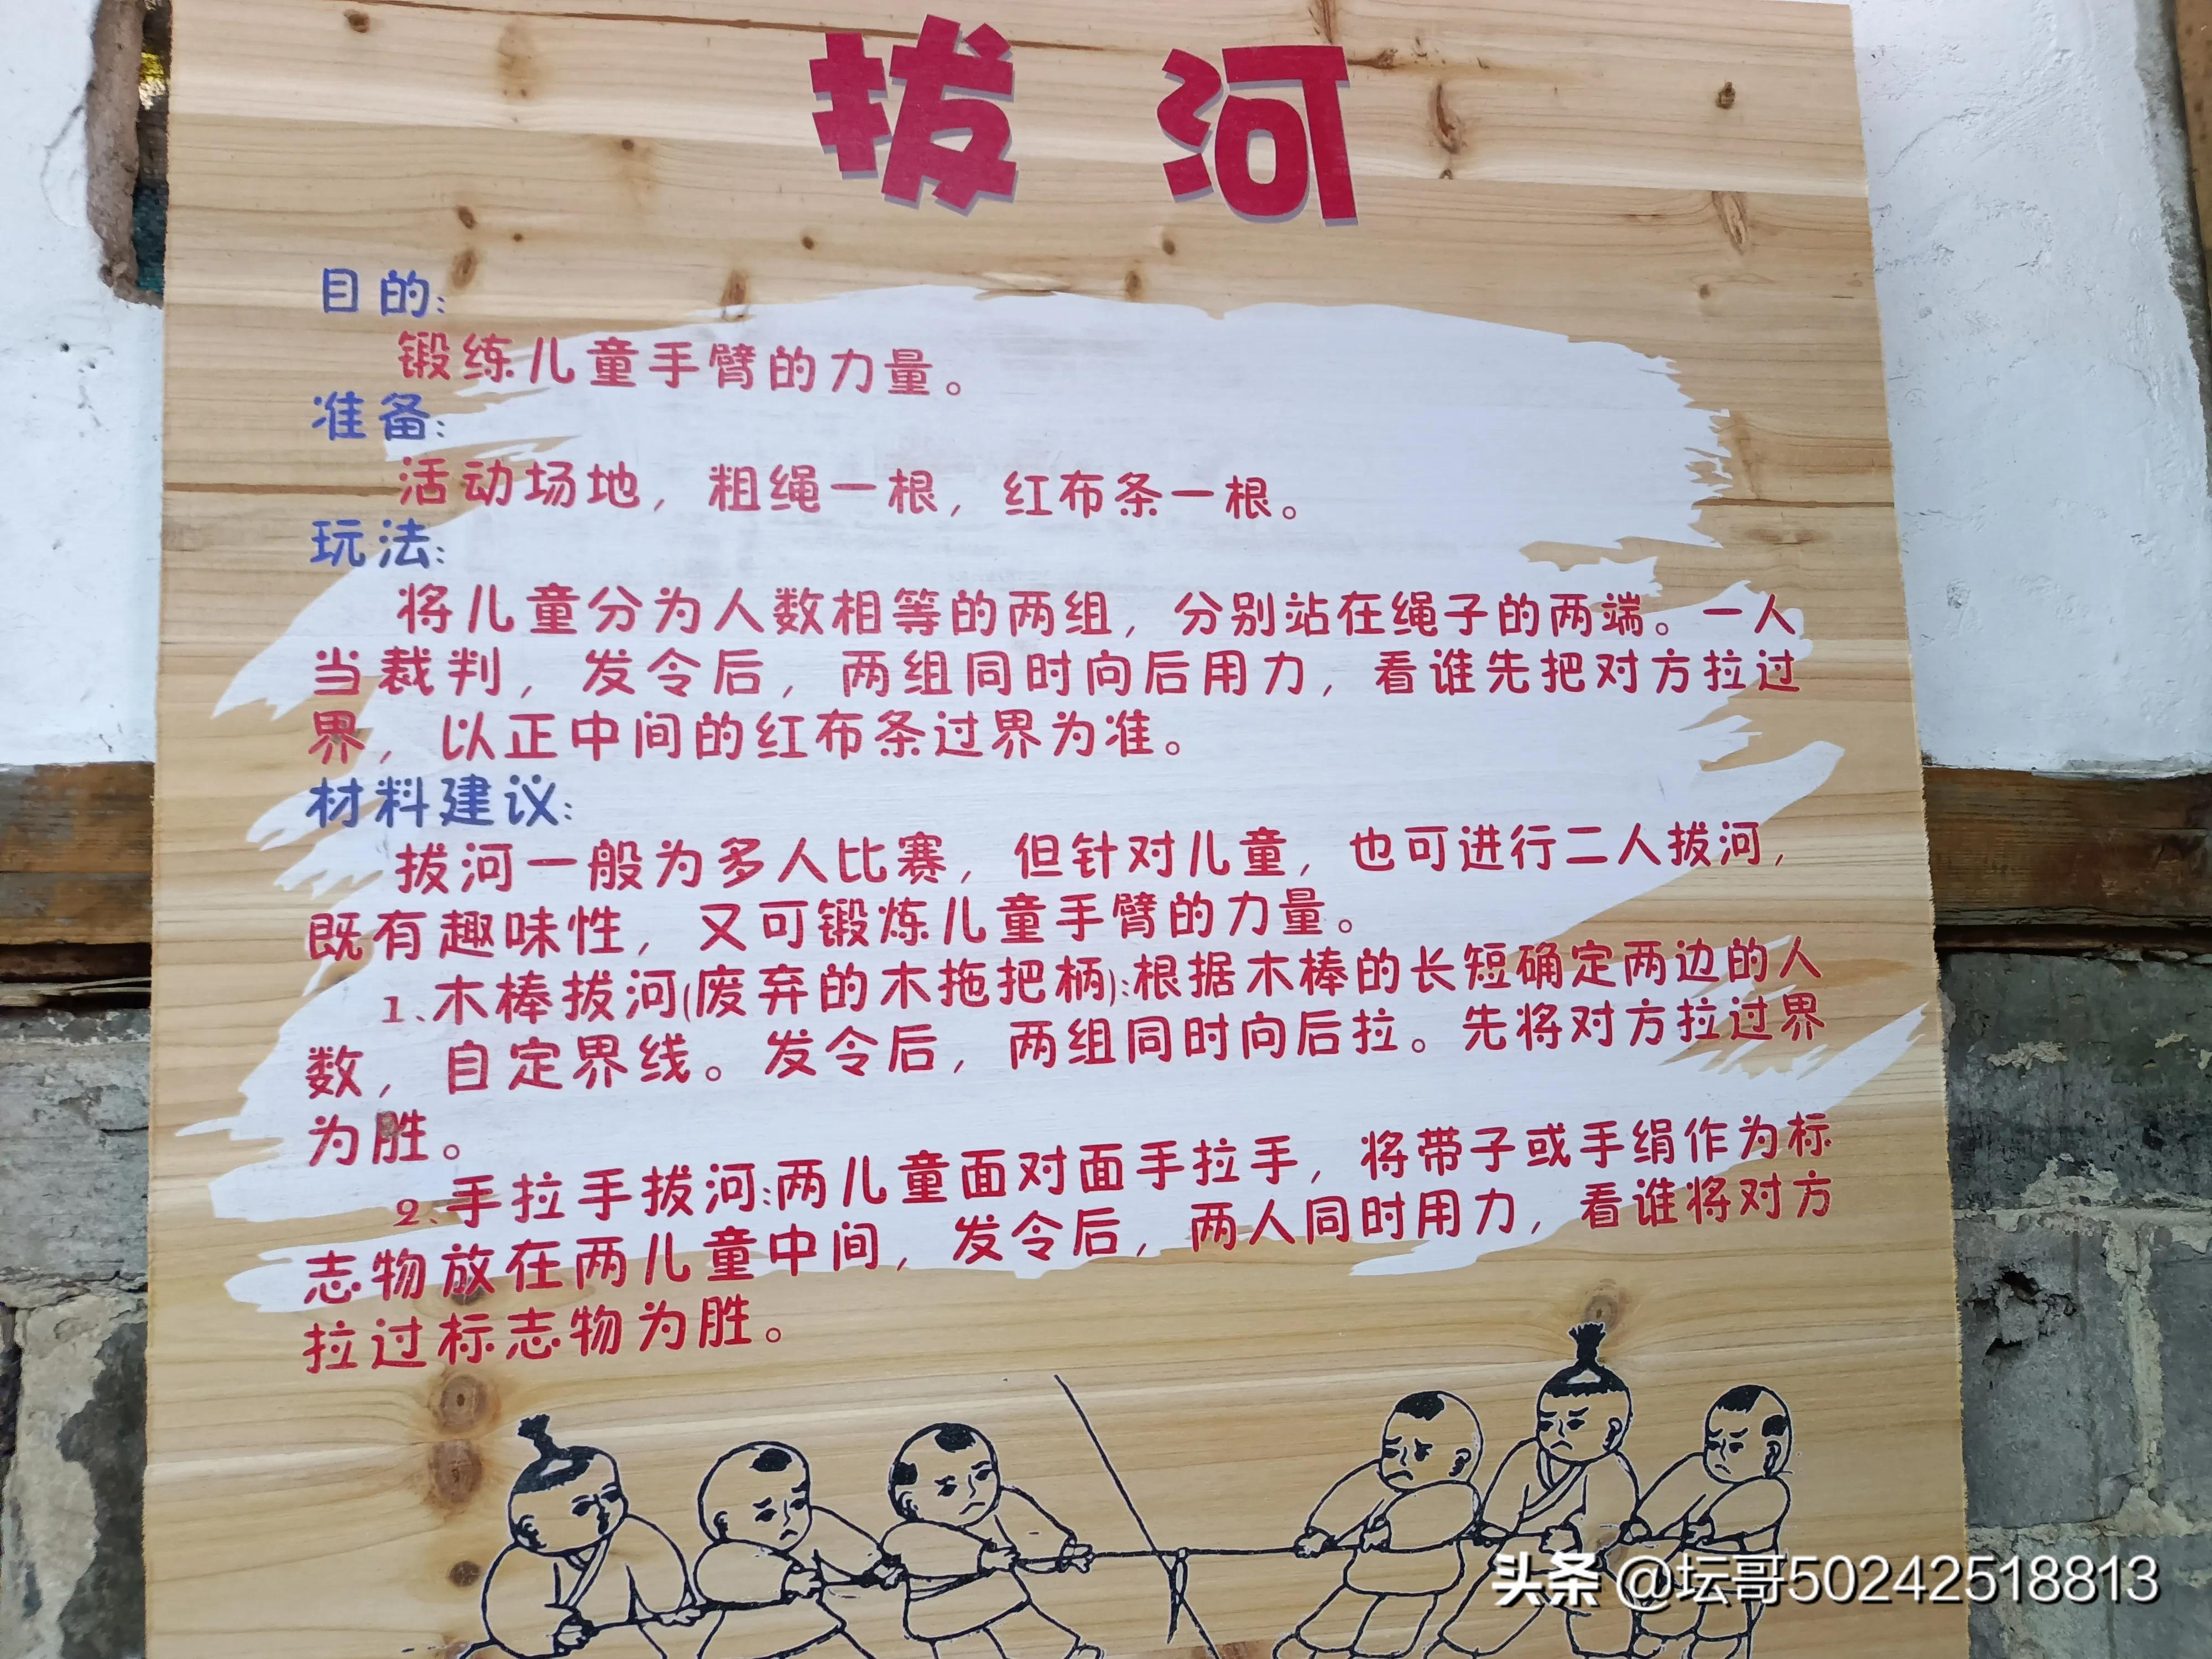 拔河
目的:
锻练儿童手臂的力量。
准备:
活动场地，粗绳一根，红布条一根。
玩法:
将儿童分为人数相等的两组，分别站在绳子的两端。一人
当裁判，发令后，两组同时向后用力，看谁先把对方拉过
界，以正中间的红布条过界为准。
材料建议:
拔河一般为多人比赛，但针对儿童，也可进行二人拔河，
既有趣味性，又可锻炼儿童手臂的力量。
1、木棒拔河(废弃的木拖把柄):根据木棒的长短确定两边的人
数，自定界线。发令后，两组同时向后拉。先将对方拉过界
为胜。
2、手拉手拔河:两儿童面对面手拉手，将带子或手绢作为标
志物放在两儿童中间，发令后，两人同时用力，看谁将对方
拉过标志物为胜。
头条 @坛哥50242518813